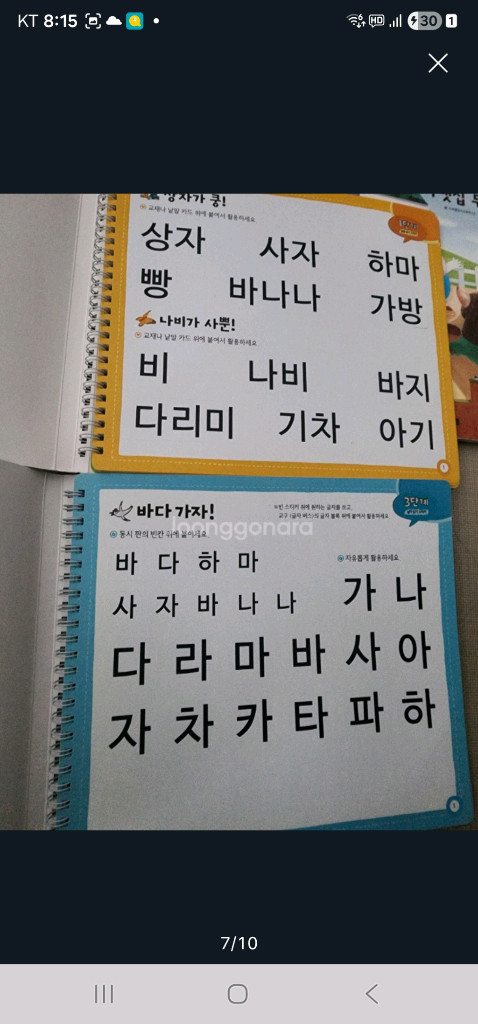 KT 8:15
HD 30 1
상자가 쿵!
교재나 낱말 카드 위에 붙여서 활용하세요
상자 사자 하마
빵 바나나 가방
나비가 사뿐!
교재나 낱말 카드 위에 붙여서 활용하세요
비 나비 바지
다리미 기차 아기
바다 가자!
3단계
동시 판의 빈칸 위에 붙이세요
바 다 하 마
자유롭게 활용하세요
사 자 바 나 나
가 나
다 라 마 바 사 아
자 차 카 타 파 하
joonggonara
7/10